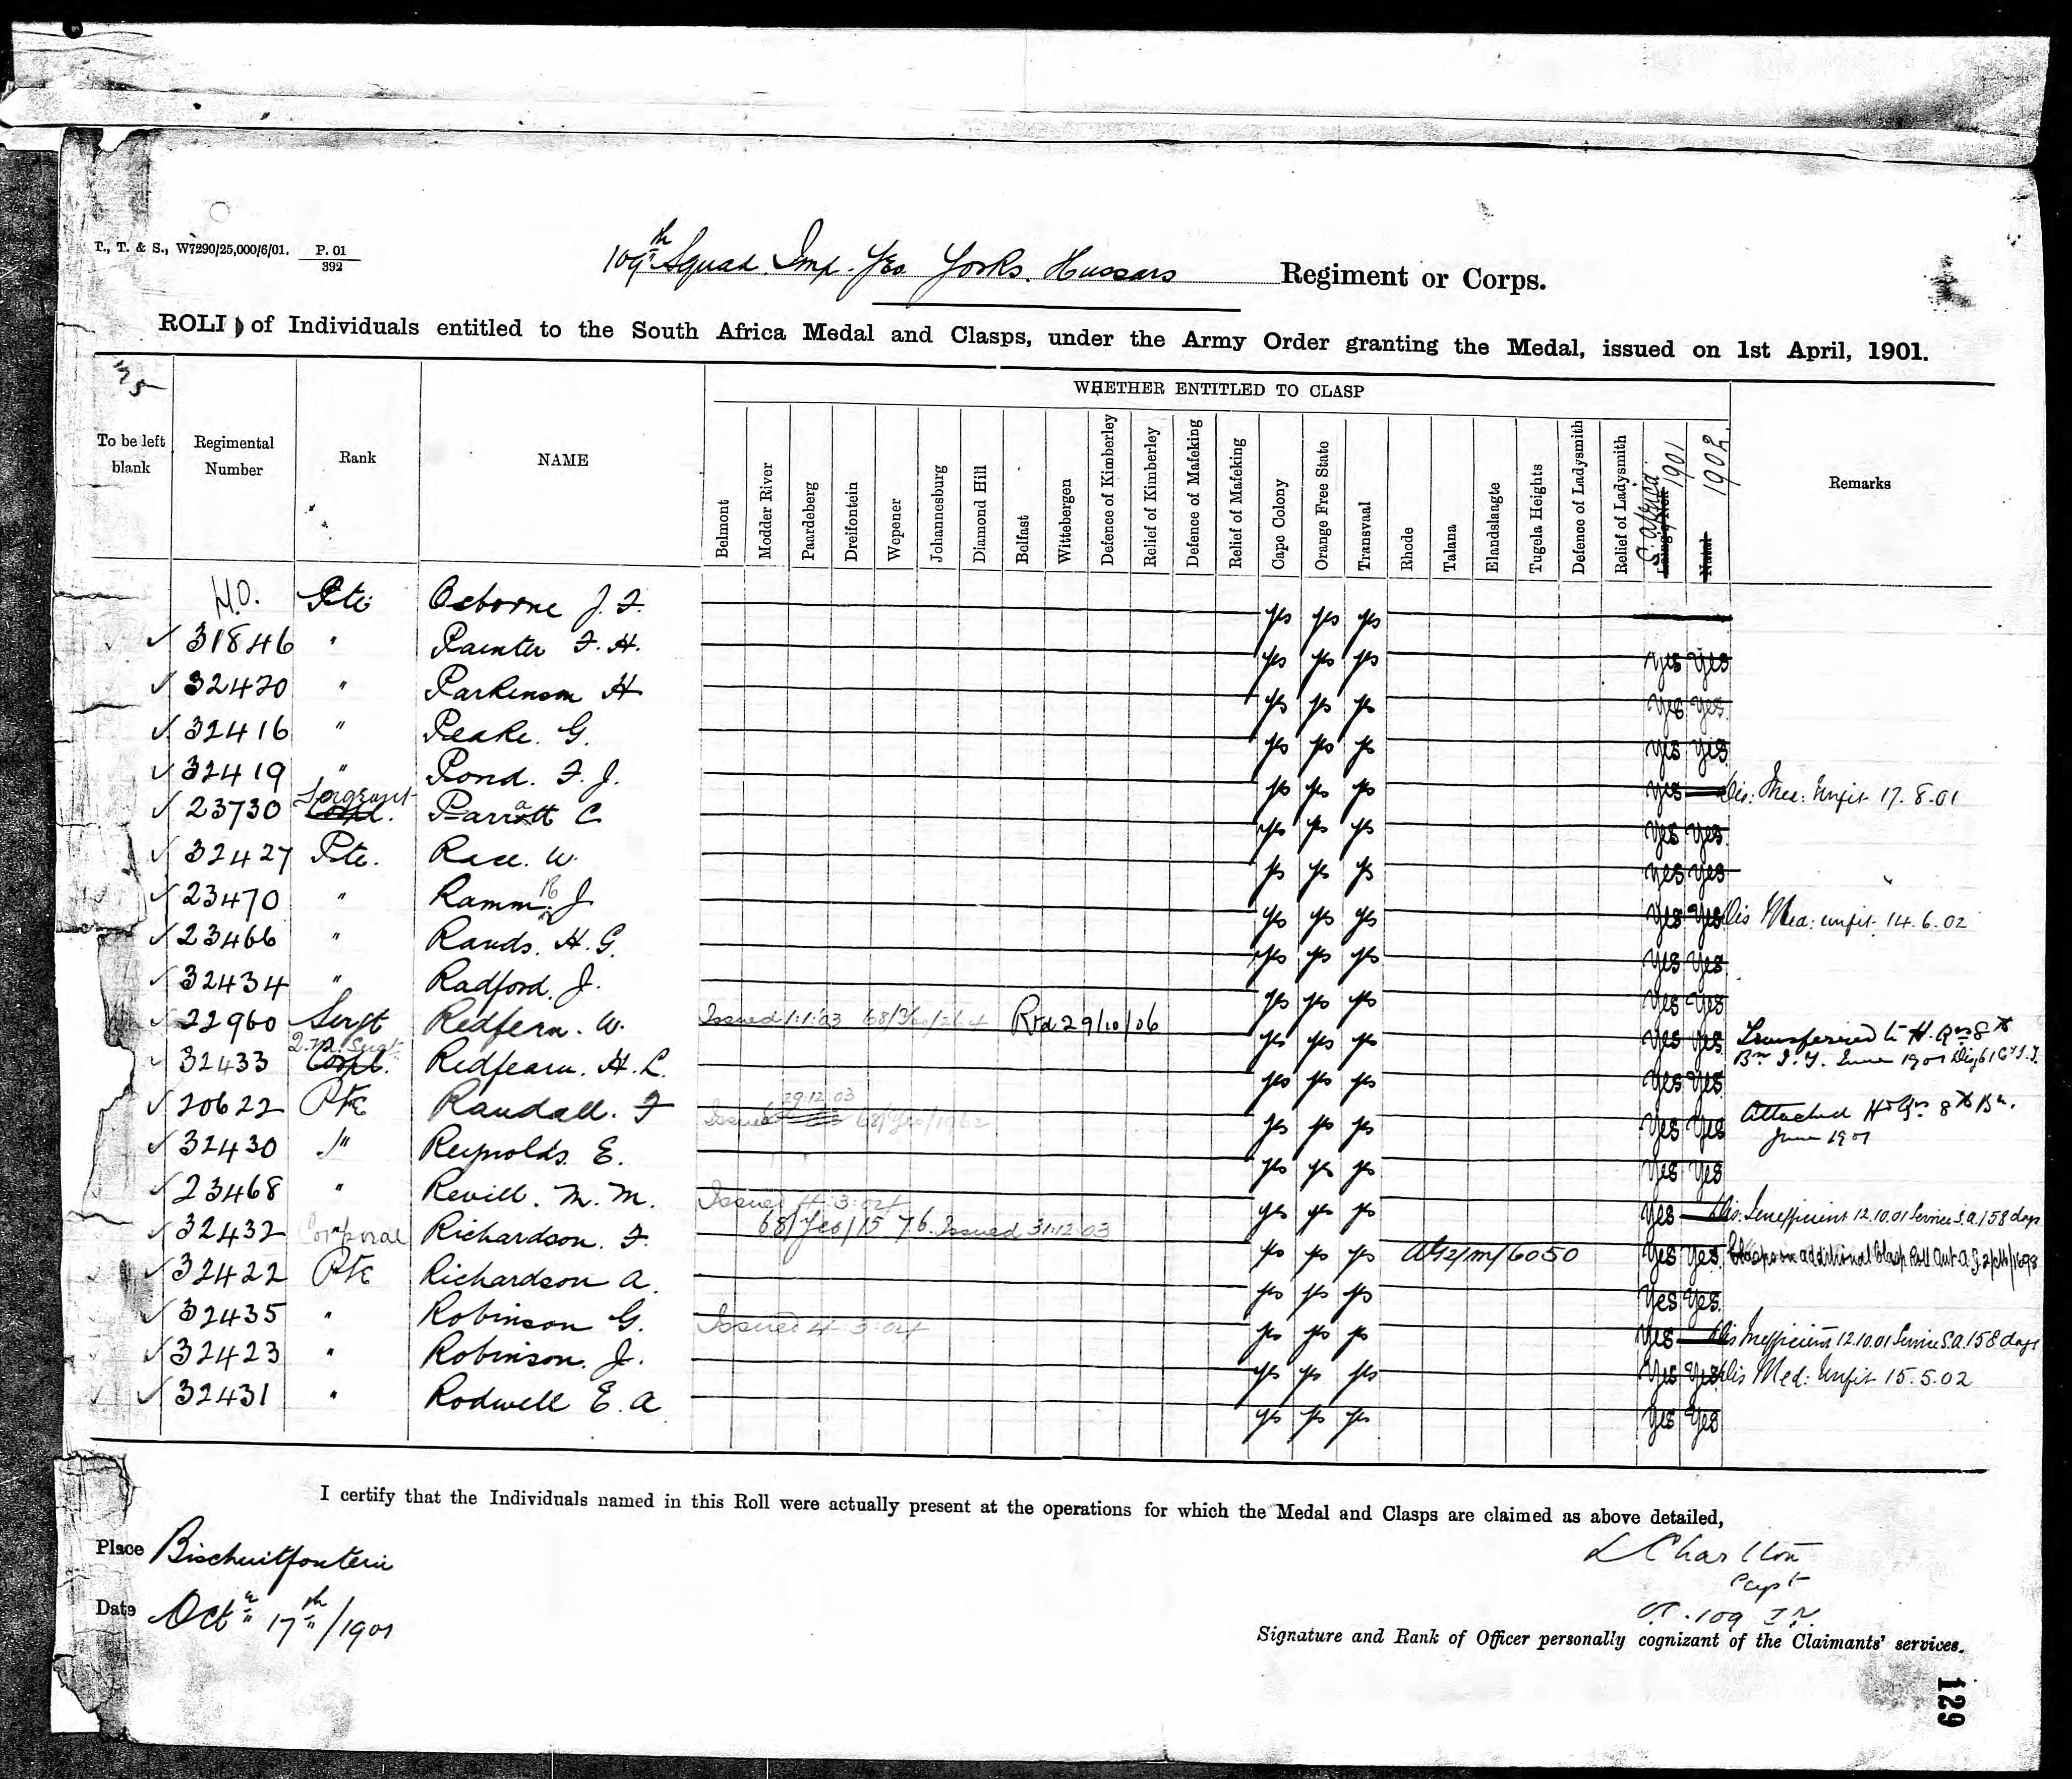 T., T. & S., W7290/25,000/6/01. P. 01
392
109th Squad. Imp. Yeo Yorks. Hussars Regiment or Corps.
ROLL of Individuals entitled to the South Africa Medal and Clasps, under the Army Order granting the Medal, issued on 1st April, 1901.
To be left blank
Regimental Number
Rank
NAME
WHETHER ENTITLED TO CLASP
Belmont
Modder River
Paardeberg
Dreifontein
Wepener
Johannesburg
Diamond Hill
Belfast
Wittebergen
Defence of Kimberley
Relief of Kimberley
Defence of Mafeking
Relief of Mafeking
Cape Colony
Orange Free State
Transvaal
Rhode
Talana
Elandslaagte
Tugela Heights
Defence of Ladysmith
Relief of Ladysmith
S. Africa 1901
Laing's Nek
1902
Natal
Remarks
Pte Osborne J. F. yes yes yes
31846 " Painter F. H. yes yes yes Yes Yes
32420 " Parkinson H yes yes yes Yes Yes
32416 " Peake. G. yes yes yes Yes Yes
32419 " Pond. F. J. yes yes yes Yes Dis: Med: Unfit 17.8.01
23730 Sergeant Corpl. Parratt C yes yes yes Yes Yes
32427 Pte. Race. W. yes yes yes Yes Yes
23470 " Ramm J yes yes yes Yes Yes Dis Med: unfit 14.6.02
23466 " Rands. H. G. yes yes yes Yes Yes
32434 " Radford. J. yes yes yes Yes Yes
22960 Sergt Redfern. W. Issued 1.1.03 Rtd 29/10/06 yes yes yes Yes Yes Transferred to H. Qrs 8th
Bn I. Y. June 1901
32433 Corpl. Redfearn. H. L. yes yes yes Yes Yes
20622 Pte Randall. F Issued 29.12.03 68/Yeo/1962 yes yes yes Yes Yes Attached Hd Qrs 8th Bn.
June 1901
32430 " Reynolds. E. yes yes yes Yes Yes
23468 " Revill. M. M. Issued 4.3.04 yes yes yes Yes Dis. Inefficient 12.10.01 Service S.A. 158 days
32432 Corporal Richardson. F. 68/Yeo/1576. Issued 31.12.03 yes yes yes Yes Yes Clasps on additional Clasp Roll
32422 Pte Richardson A. yes yes yes Yes Yes
32435 " Robinson G. Issued 4.3.04 yes yes yes Yes Dis Inefficient 12.10.01 Service S.A. 158 days
32423 " Robinson. J. yes yes yes Yes Yes Dis Med: Unfit 15.5.02
32431 " Rodwell E. A yes yes yes Yes Yes
I certify that the Individuals named in this Roll were actually present at the operations for which the Medal and Clasps are claimed as above detailed,
Place
Date Oct 17th/1901
L Charlton
Capt
O.C. 109 I.Y.
Signature and Rank of Officer personally cognizant of the Claimants' services.
129